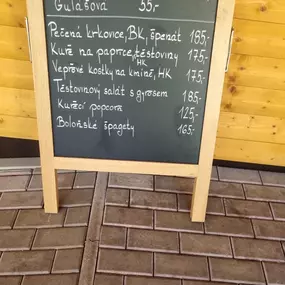 Gulášová 35,-
Pečená krkovice, BK, špenát 185,-
Kuře na paprice, těstoviny 175,-
HK
Vepřové kostky na kmíně, HK 175,-
Těstovinový salát s gyrosem 185,-
Kuřecí popcorn 125,-
Boloňské špagety 165,-